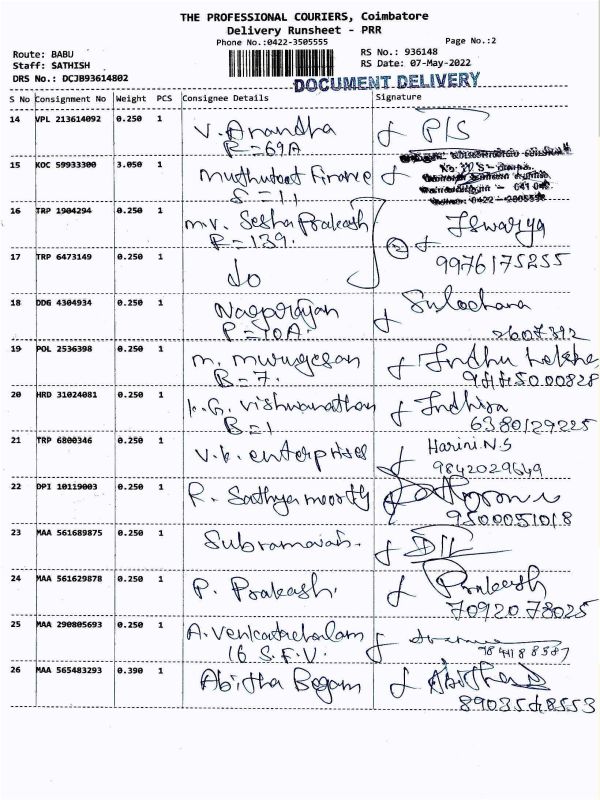 THE PROFESSIONAL COURIERS, Coimbatore
Delivery Runsheet - PRR
Phone No.:0422-3505555 Page No.:2
Route: BABU RS No.: 936148
Staff: SATHISH RS Date: 07-May-2022
DRS No.: DCJB93614802
DOCUMENT DELIVERY
S No Consignment No Weight PCS Consignee Details Signature
14 VPL 213614092 0.250 1 V. Anandha P/S
R=69A
15 KOC 59933300 3.050 1 Muthutoot Finance
S=11
16 TRP 1904294 0.250 1 m.v. Sesha Prakash Iswarya
R=139.
17 TRP 6473149 0.250 1 do 9976175255
18 DDG 4304934 0.250 1 Nagarajan Sulochana
P=10A.
19 POL 2536398 0.250 1 m. murugesan Indhu Lekha
B=7.
20 HRD 31024081 0.250 1 K.G. Vishwanathan Indhiya
B=1 6380129225
21 TRP 6800346 0.250 1 V.k. enterprises Harini.N.S
9842029649
22 DPI 10119003 0.250 1 R. Sathyamoorthy
9500051018
23 MAA 561689875 0.250 1 Subramaian.
24 MAA 561629878 0.250 1 P. Prakash. Prakash
7092078025
25 MAA 290805693 0.250 1 A. Venkatachalam
16 S.F.V.
26 MAA 565483293 0.390 1 Abitha Begam
8903548553